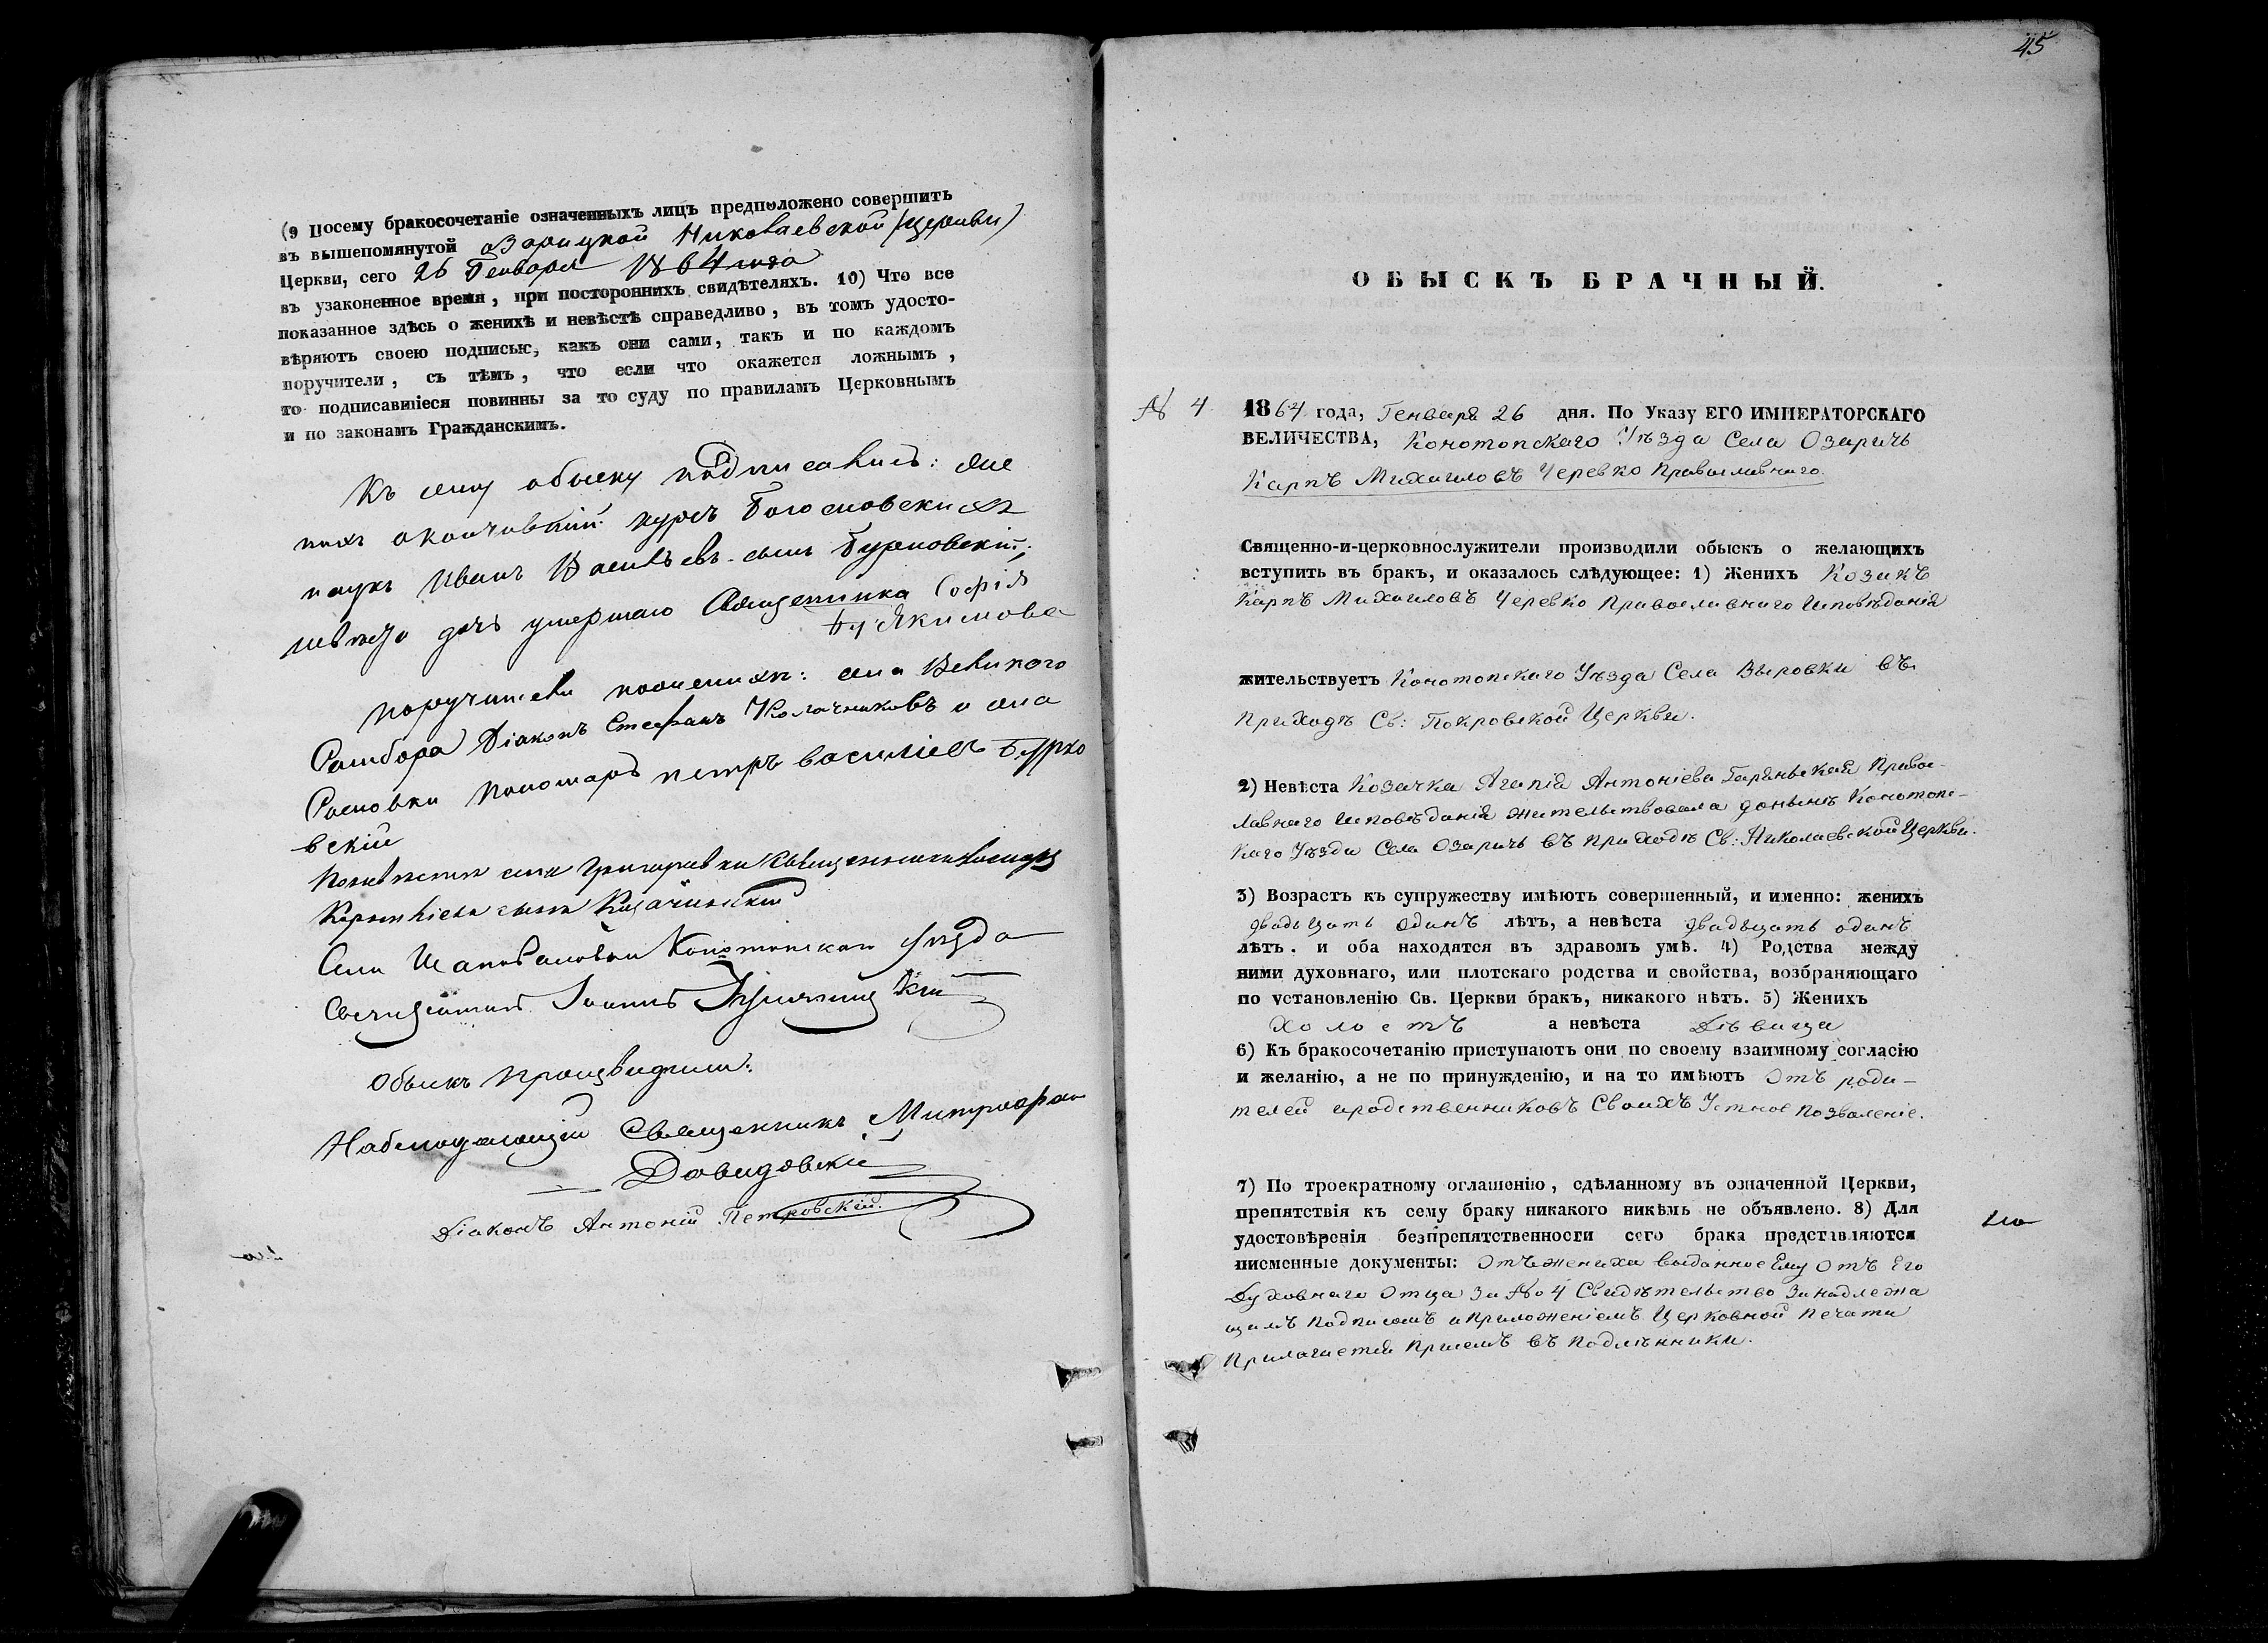 (9 Посему бракосочетаніе означенныхъ лицъ предположено совершить
въ вышепомянутой Озарицкой Николаевской (Церкви)
Церкви, сего 26 Генваря 1864 года
въ узаконенное время, при постороннихъ свидѣтеляхъ. 10) Что все
показанное здѣсь о женихѣ и невѣстѣ справедливо, въ томъ удосто-
вѣряютъ своею подписью, какъ они сами, такъ и по каждомъ
поручители, съ тѣмъ, что если что окажется ложнымъ,
то подписавшіеся повинны за то суду по правиламъ Церковнымъ
и по законамъ Гражданскимъ.
Къ сему обыску подписались: Же
нихъ окончившій курсъ Богословскихъ
наукъ Иванъ Васильевъ сынъ Бурковскій;
невѣста дочь умершаго Священника Софія
Якимова
поручители по женихѣ: села Великого
Самбора Діаконъ Стефанъ Колачниковъ и села
Сосновки Пономарь петръ василіевъ Бурко
вскій
По невѣстѣ села Григоровки Священника
сынъ
Села Шаповаловки Конотопскаго уѣзда
Священникъ Іоаннъ
Обыскъ производили:
Наблюдающій Священникъ Митрофан
Давидовскій
Діаконъ Антоній Петровскій.
45
ОБЫСКЪ БРАЧНЫЙ.
№ 4
1864 года, Генваря 26 дня. По Указу ЕГО ИМПЕРАТОРСКАГО
ВЕЛИЧЕСТВА, Конотопскаго Уѣзда Села Озаричь
Карпъ Михаиловъ Черевко Православнаго
Священно-и-церковнослужители производили обыскъ о желающихъ
вступить въ бракъ, и оказалось слѣдующее: 1) Женихъ Козакъ
Карпъ Михаиловъ Черевко Православнаго Исповѣданія
жительствуетъ Конотопскаго Уѣзда Села Выровки въ
Приходѣ Св: Покровской Церкви.
2) Невѣста Козачка Агапія Антоніева Правос-
лавнаго Исповѣданія жительствовала донынѣ Конотопс-
каго Уѣзда Села Озаричь въ Приходѣ Св: Николаевской Церкви.
3) Возрастъ къ супружеству имѣютъ совершенный, и именно: женихъ
двадцать одинъ лѣтъ, а невѣста двадцать одинъ
лѣтъ. и оба находятся въ здравомъ умѣ. 4) Родства между
ними духовнаго, или плотскаго родства и свойства, возбраняющаго
по установленію Св. Церкви бракъ, никакого нѣтъ. 5) Женихъ
холостъ а невѣста Дѣвица
6) Къ бракосочетанію приступаютъ они по своему взаимному согласію
и желанію, а не по принужденію, и на то имѣютъ Отъ роди-
телей иродственниковъ Своихъ Устное позволеніе.
7) По троекратному оглашенію, сдѣланному въ означенной Церкви,
препятствія къ сему браку никакого никѣмъ не объявлено. 8) Для
удостовѣренія безпрепятственности сего брака представляются
писменные документы: Отъ жениха выданное Ему отъ Его
Духовнаго Отца За №о 4 Свидѣтельство Занадлежа
щимъ подписомъ и приложеніемъ Церковной печати
Прилагается присемъ въ подлѣнники.